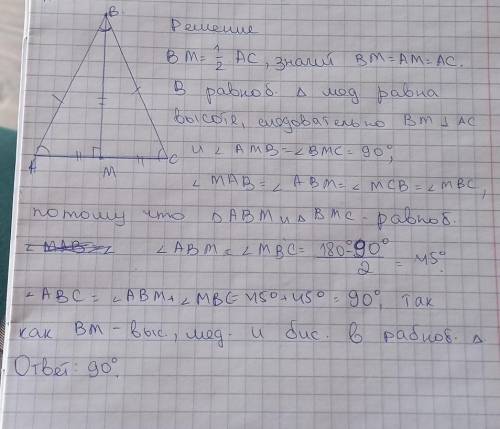 B
Решение
BM = 1/2 AC, значит BM = AM = AC.
В равноб. △ мед равна
высоте, следовательно BM ⊥ AC
и ∠ AMB = ∠ BMC = 90°,
∠ MAB = ∠ ABM = ∠ MCB = ∠ MBC,
A M C
потому что △ ABM и △ BMC - равноб.
∠ MAB = ∠ ∠ ABM = ∠ MBC = 180° - 90° / 2 = 45°.
∠ ABC = ∠ ABM + ∠ MBC = 45° + 45° = 90°, так
как BM - выс, мед. и бис. в равноб. △
Ответ: 90°.